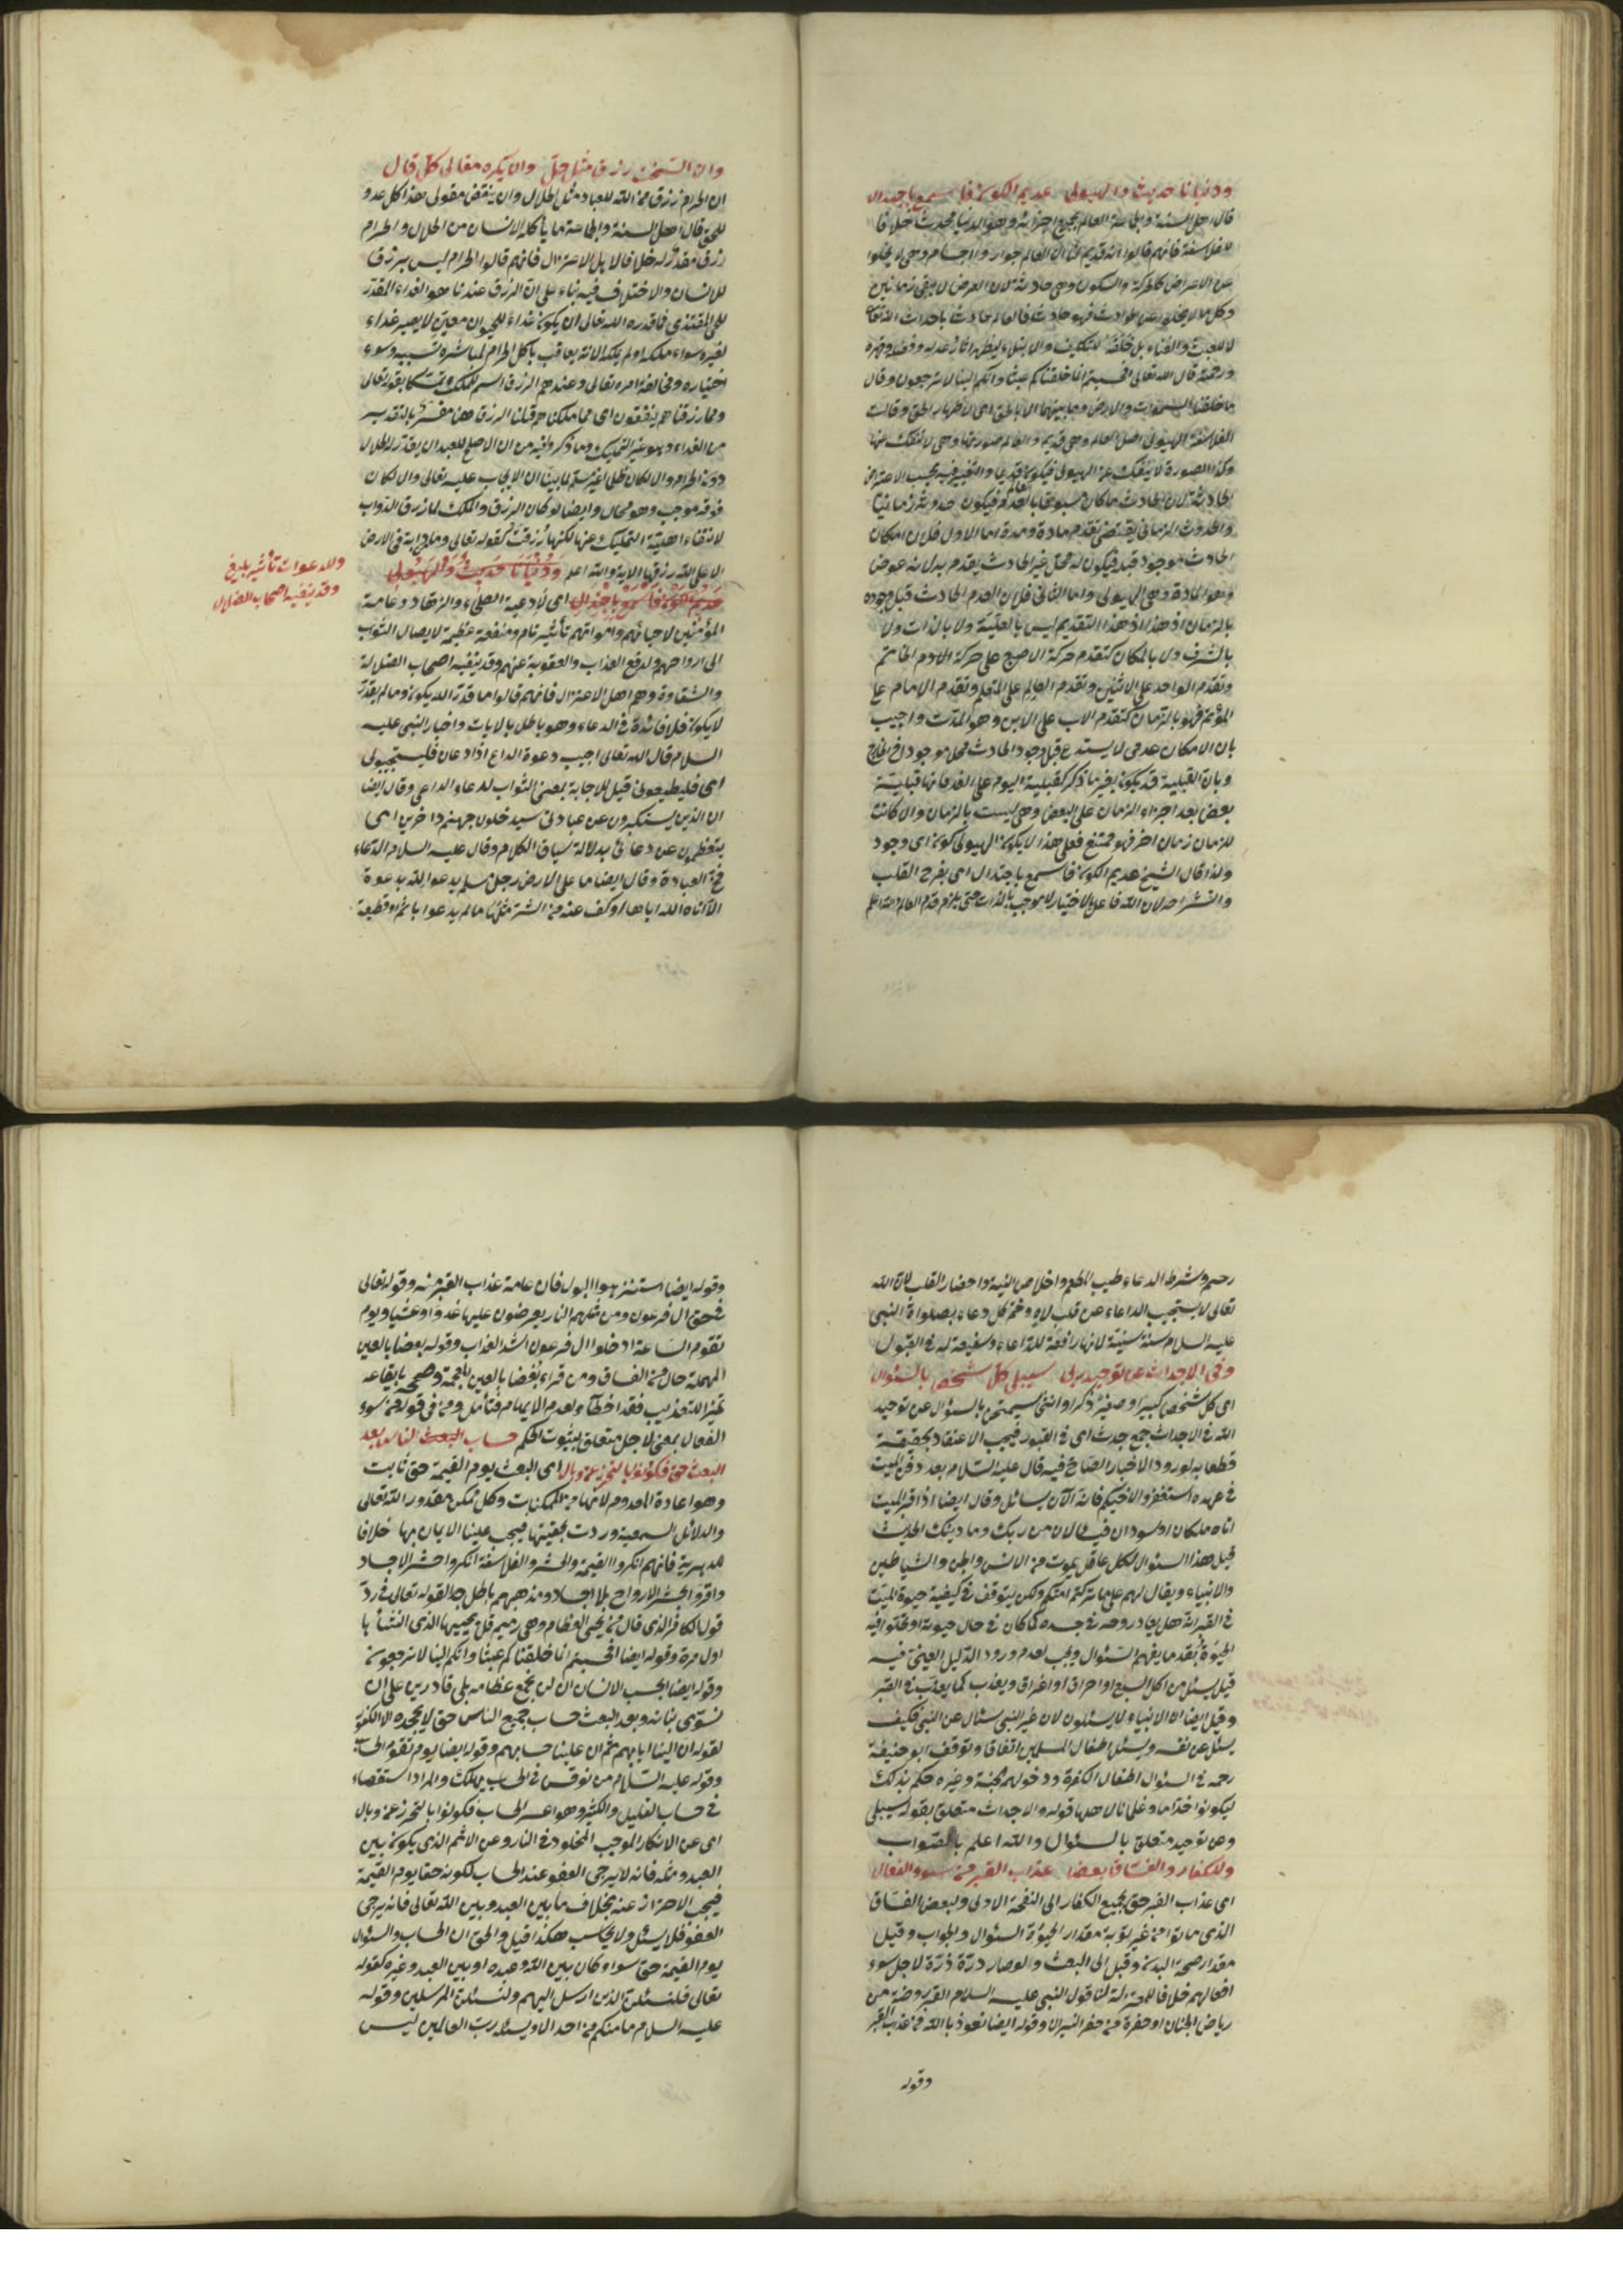 ودنيانا حديث والهيولى عديم الكون فاسمع باجتذال
قال اهل السنة والجماعة العالم بجميع اجزائه وهو الدنيا محدث خلافا
للفلاسفة فانهم قالوا انه قديم لنا ان العالم جواهر واجسام وهي لا يخلوا
عن الاعراض كالحركة والسكون وهي حادثة لان العرض لا يبقى زمانين
وكل ما لا يخلو عن حوادث فهو حادث فالعالم حادث باحداث الله تعالى
لا للعبث والفناء بل خلقه للتكليف والابتلاء ليظهر اثار عدله وفضله وقهره
ورحمته قال الله تعالى افحسبتم انما خلقناكم عبثا وانكم الينا لا ترجعون وقال
ما خلقنا السموات والارض وما بينهما الا بالحق اى لاظهار الحق وقالت
الفلاسفة الهيولى اصل العالم وهي قديم والعالم صورتها وهي لا تنفك عنها
وكذا الصورة لا ينفك عن الهيولى فيكون قديما والتغيير فيه بحسب الاعراض
الحادثة لان الحادث ما كان مسبوقا بالعدم فيكون حدوثه زمانيا
والحدوث الزماني يقتضى تقدم مادة ومدة اما الاول فلان امكان
الحادث موجود قبله فيكون له محل غير الحادث يقدم به لانه عرض
وهو المادة وهي الهيولى واما الثاني فلان العدم الحادث قبل وجوده
بالزمان اذ هذا اذ هذا التقديم ليس بالعلية ولا بالذات ولا
بالشرف ولا بالمكان كتقدم حركة الاصبع على حركة الادم الخاتم
وتقدم الواحد على الاثنين وتقدم العالم على المتعلم وتقدم الامام على
المؤتم فهو بالزمان كتقدم الاب على الابن وهو المدت واجيب
بان الامكان عدمى لا يستدعى قبل وجود الحادث محلا موجودا في الخارج
وبان القبلية قد يكون بغير ما ذكر كقبلية اليوم على الغد فانها قبلية
بعض بعد اجزاء الزمان على البعض وهي ليست بالزمان والا كانت
للزمان زمان اخر فهو ممتنع فعلى هذا لا يكون الهيولى كون اى وجود
ولذا قال الشيخ عديم الكون فاسمع باجتذال اى بفرح القلب
وانشراحه لان الله فاعل بالاختيار لا موجب بالذات حتى يلزم قدم العالم والله اعلم
وان السحت رزق مثل حل وان يكره مقالى كل قال
ان الحرام رزق من الله للعباد مثل الحلال وان ينقض مقولى هذا كل عدو
للحق قال اهل السنة والجماعة ما يأكله الانسان من الحلال والحرام
رزق مقدر له خلافا لاهل الاعتزال فانهم قالوا الحرام ليس برزق
للانسان والاختلاف فيه بناء على ان الرزق عندنا هو الغداء المقدر
للمغتذى فما قدره الله تعالى ان يكون غداء للحيوان معين لا يصير غداء
لغيره سواء ملكه او لم يملكه الا انه يعاقب باكل الحرام لمباشرة سببه وسوء
اختياره ومخالفة امره تعالى وعندهم الرزق اسم للملك وتمسكا بقوله تعالى
ومما رزقناهم ينفقون اى مما ملكناهم قلنا الرزق هنا مفسر بالتقدير
من الغداء وهو غير التمليك وما ذكر وليه من ان الاصلح للعبد ان يقدر له الحلال
دون الحرام والا لكان ظلما غير مستم لما بينا ان لا يجب عليه تعالى والا لكان
فوقه موجب وهو محال وايضا لو كان الرزق والملك لما رزق الدواب
لانتفاء اهلية التمليك عنها لكنها رزقت كقوله تعالى وما من دابة في الارض
الا على الله رزقها الاية والله اعلم ودنيانا حديث والهيولى
عديم الكون فاسمع باجتذال اى لأدعية الصلحاء والزهاد وعامة
المؤمنين لاحيائهم وامواتهم تأثير تام ومنفعة عظيمة لايصال الثواب
الى ارواحهم ولدفع العذاب والعقوبة عنهم وقد ينفيه اصحاب الضلالة
والشقاوة وهم اهل الاعتزال فانهم قالوا ما قدر الله يكون وما لم يقدر
لا يكون فلا فائدة في الدعاء وهو باطل بالايات واخبار النبى عليه
السلام قال الله تعالى اجيب دعوة الداع اذا دعان فليستجيبوا لى
اى فليطيعونى قيل الاجابة بمعنى الثواب لدعاء الداعى وقال ايضا
ان الذين يستكبرون عن عبادتى سيدخلون جهنم داخرين اى
يتعظمون عن دعائى بدلالة سياق الكلام وقال عليه السلام الدعاء
مخ العبادة وقال ايضا ما على الارض رجل مسلم يدعو الله بدعوة
الا آتاه الله اياها او كف عنه من الشر مثلها ما لم يدعو باثم او قطيعة
وللدعوات تأثير بليغ
وقد ينفيه اصحاب الضلال
رحم وشرط الدعاء طيب المطعم واخلاص النية واحضار القلب لان الله
تعالى لا يستجيب الدعاء عن قلب لاه وختم كل دعاء بصلواة النبى
عليه السلام سنة سنية لانها رافعة للدعاء وشفيعة له في القبول
وفي الاجداث عن توحيد ربى سيبلى كل شخص بالسؤال
اى كل شخص كبيرا وصغيرا ذكرا وانثى سيمتحن بالسؤال عن توحيد
الله في الاجداث جمع جدث اى في القبور فيجب الاعتقاد بحقيقته
قطعا به لورود الاخبار الصحاح فيه قال عليه السلام بعد دفن الميت
في عهده استغفروا لاخيكم فانه الآن يسائل وقال ايضا اذا قبر الميت
اتاه ملكان اسودان فيسئالان من ربك وما دينك الحديث
قيل هذا السئوال لكل عاقل يموت من الانس والجن والشياطين
والانبياء ويقال لهم على ما تركتم امتكم ولكن يتوقف في كيفية حيوة الميت
في القبر انه هل يعاد روحه في جسده كما كان في حال حيوته او يخلق فيه
الحيوة بقدر ما يفهم السئوال ويجب لعدم ورود الدليل العيني فيه
قيل يسئل من اكل السبع او احراق او اغراق ويعذب كما يعذب في القبر
وقيل ايضا ان الانبياء لا يسئلون لان غير النبى سئال عن النبى فكيف
يسئل عن نفسه ويسئل اطفال المسلمين اتفاقا وتوقف ابو حنيفة
رحمه في السئوال اطفال الكفرة ودخولهم الجنة وغيره حكم بذلك
ليكونوا خداما وغلمانا لاهلها قوله والاجداث متعلق بقوله سيبلى
وعن توحيد متعلق بالسئوال والله اعلم بالصواب
وللكفار والفساق بعضا عذاب القبر من سوء الفعال
اى عذاب القبر حق لجميع الكفار الى النفخة الاولى ولبعض الفساق
الذى ماتوا من غير توبة مقدار الحيوة السئوال والجواب وقيل
مقدار صحة البدن وقيل الى البعث ولو صار ذرة ذرة لاجل سوء
افعالهم خلافا للمعتزلة لنا قول النبى عليه السلام القبر روضة من
رياض الجنان او حفرة من حفر النيران وقوله ايضا نعوذ بالله من عذاب القبر
وقوله
وقوله ايضا استنزهوا البول فان عامة عذاب القبر منه وقوله تعالى
في حق ال فرعون ومن مثلهم النار يعرضون عليها غدوا وعشيا ويوم
تقوم الساعة ادخلوا ال فرعون اشد العذاب وقوله بعضا بالعين
المهملة حال من الفساق ومن قراء بغضا بالعين المعجمة وصححه بايقاعه
تميزا للتعذيب فقد اخطآ ولعدم الايهام فتأمل ومن في قوله من سوء
الفعال بمعنى لاجل متعلق بثبوت الحكم حساب البعث الناس بعد
البعث حق فكونوا بالتحرز عن وبال اى البعث يوم القيمة حق ثابت
وهو اعادة المعدوم لانها من الممكنات وكل ممكن مقدور الله تعالى
والدلائل السمعية وردت بحقيتها فيجب علينا الايمان بها خلافا
للدهرية فانهم انكروا القيمة والحشر والفلاسفة انكروا حشر الاجساد
واقروا بحشر الارواح بلا اجساد ومذهبهم باطل جدا لقوله تعالى في رد
قول الكافر الذى قال من يحيى العظام وهي رميم قل يحييها الذى انشأها
اول مرة وقوله ايضا افحسبتم انما خلقناكم عبثا وانكم الينا لا ترجعون
وقوله ايضا ايحسب الانسان ان لن نجمع عظامه بلى قادرين على ان
نسوى بنانه وبعد البعث حساب جميع الناس حق لا يجحده الا الكفور
لقوله ان الينا ايابهم ثم ان علينا حسابهم وقوله ايضا يوم تقوم الحساب
وقوله عليه السلام من نوقش في الحساب يهلك والمراد استقصاء
في حساب القليل والكثير وهو اعسر الحساب فكونوا بالتحرز عن وبال
اى عن الانكار الموجب المخلود في النار وعن الاثم الذى يكون بين
العبد ومثله فانه لا يرجى العفو عند الحساب لكونه حقا يوم القيمة
فيجب الاحتراز عنه بخلاف ما بين العبد وبين الله تعالى فانه يرجى
العفو فلا يسئل ولا يحاسب هكذا قيل والحق ان الحساب والسئوال
يوم القيمة حق سواء كان بين الله وعبده او بين العبد وغيره كقوله
تعالى فلنسئلن الذين ارسل اليهم ولنسئلن المرسلين وقوله
عليه السلام ما منكم من احد الا ويسئله رب العالمين ليس